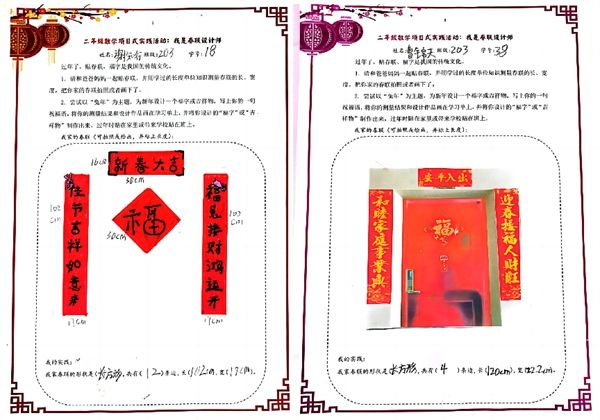 二年级数学项目式实践活动：我是春联设计师
班级:203 学号:18
过年了，贴春联、福字是我国的传统文化。
1. 请和爸爸妈妈一起贴春联，并用学过的长度单位知识测量春联的长、宽
度，把你家的春联的形状或者拍照或者画下了。
2. 尝试以“兔年”为主题，为新年设计一个福字或吉祥物，写上你的一句
祝福语，将你的测量结果和设计作品画在学习单上，并将你设计的“福字”或“吉
祥物”制作出来，过年时贴在家里或带来学校贴在班上。
我家的春联（可拍照或绘画，并贴上长度）：
新春大吉
38cm
佳节吉祥如意来
福
30cm
103
cm
17cm
我的实践：
我家春联的形状是(长方形)，共有(12)条边，长(112cm)，宽(17cm)。
二年级数学项目式实践活动：我是春联设计师
班级:203 学号:38
过年了，贴春联、福字是我国的传统文化。
1. 请和爸爸妈妈一起贴春联，并用学过的长度单位知识测量春联的长、宽
2. 尝试以“兔年”为主题，为新年设计一个福字或吉祥物，写上你的一句
祝福语，将你的测量结果和设计作品画在学习单上，并将你设计的“福字”或“吉
祥物”制作出来，过年时贴在家里或带来学校贴在班上。
我家的春联（可拍照或绘画，并贴上长度）：
安平入出
和睦家庭事业兴
福
迎春接福人财旺
我的实践：
我家春联的形状是(长方形)，共有(4)条边，长(120cm)，宽(22cm)。